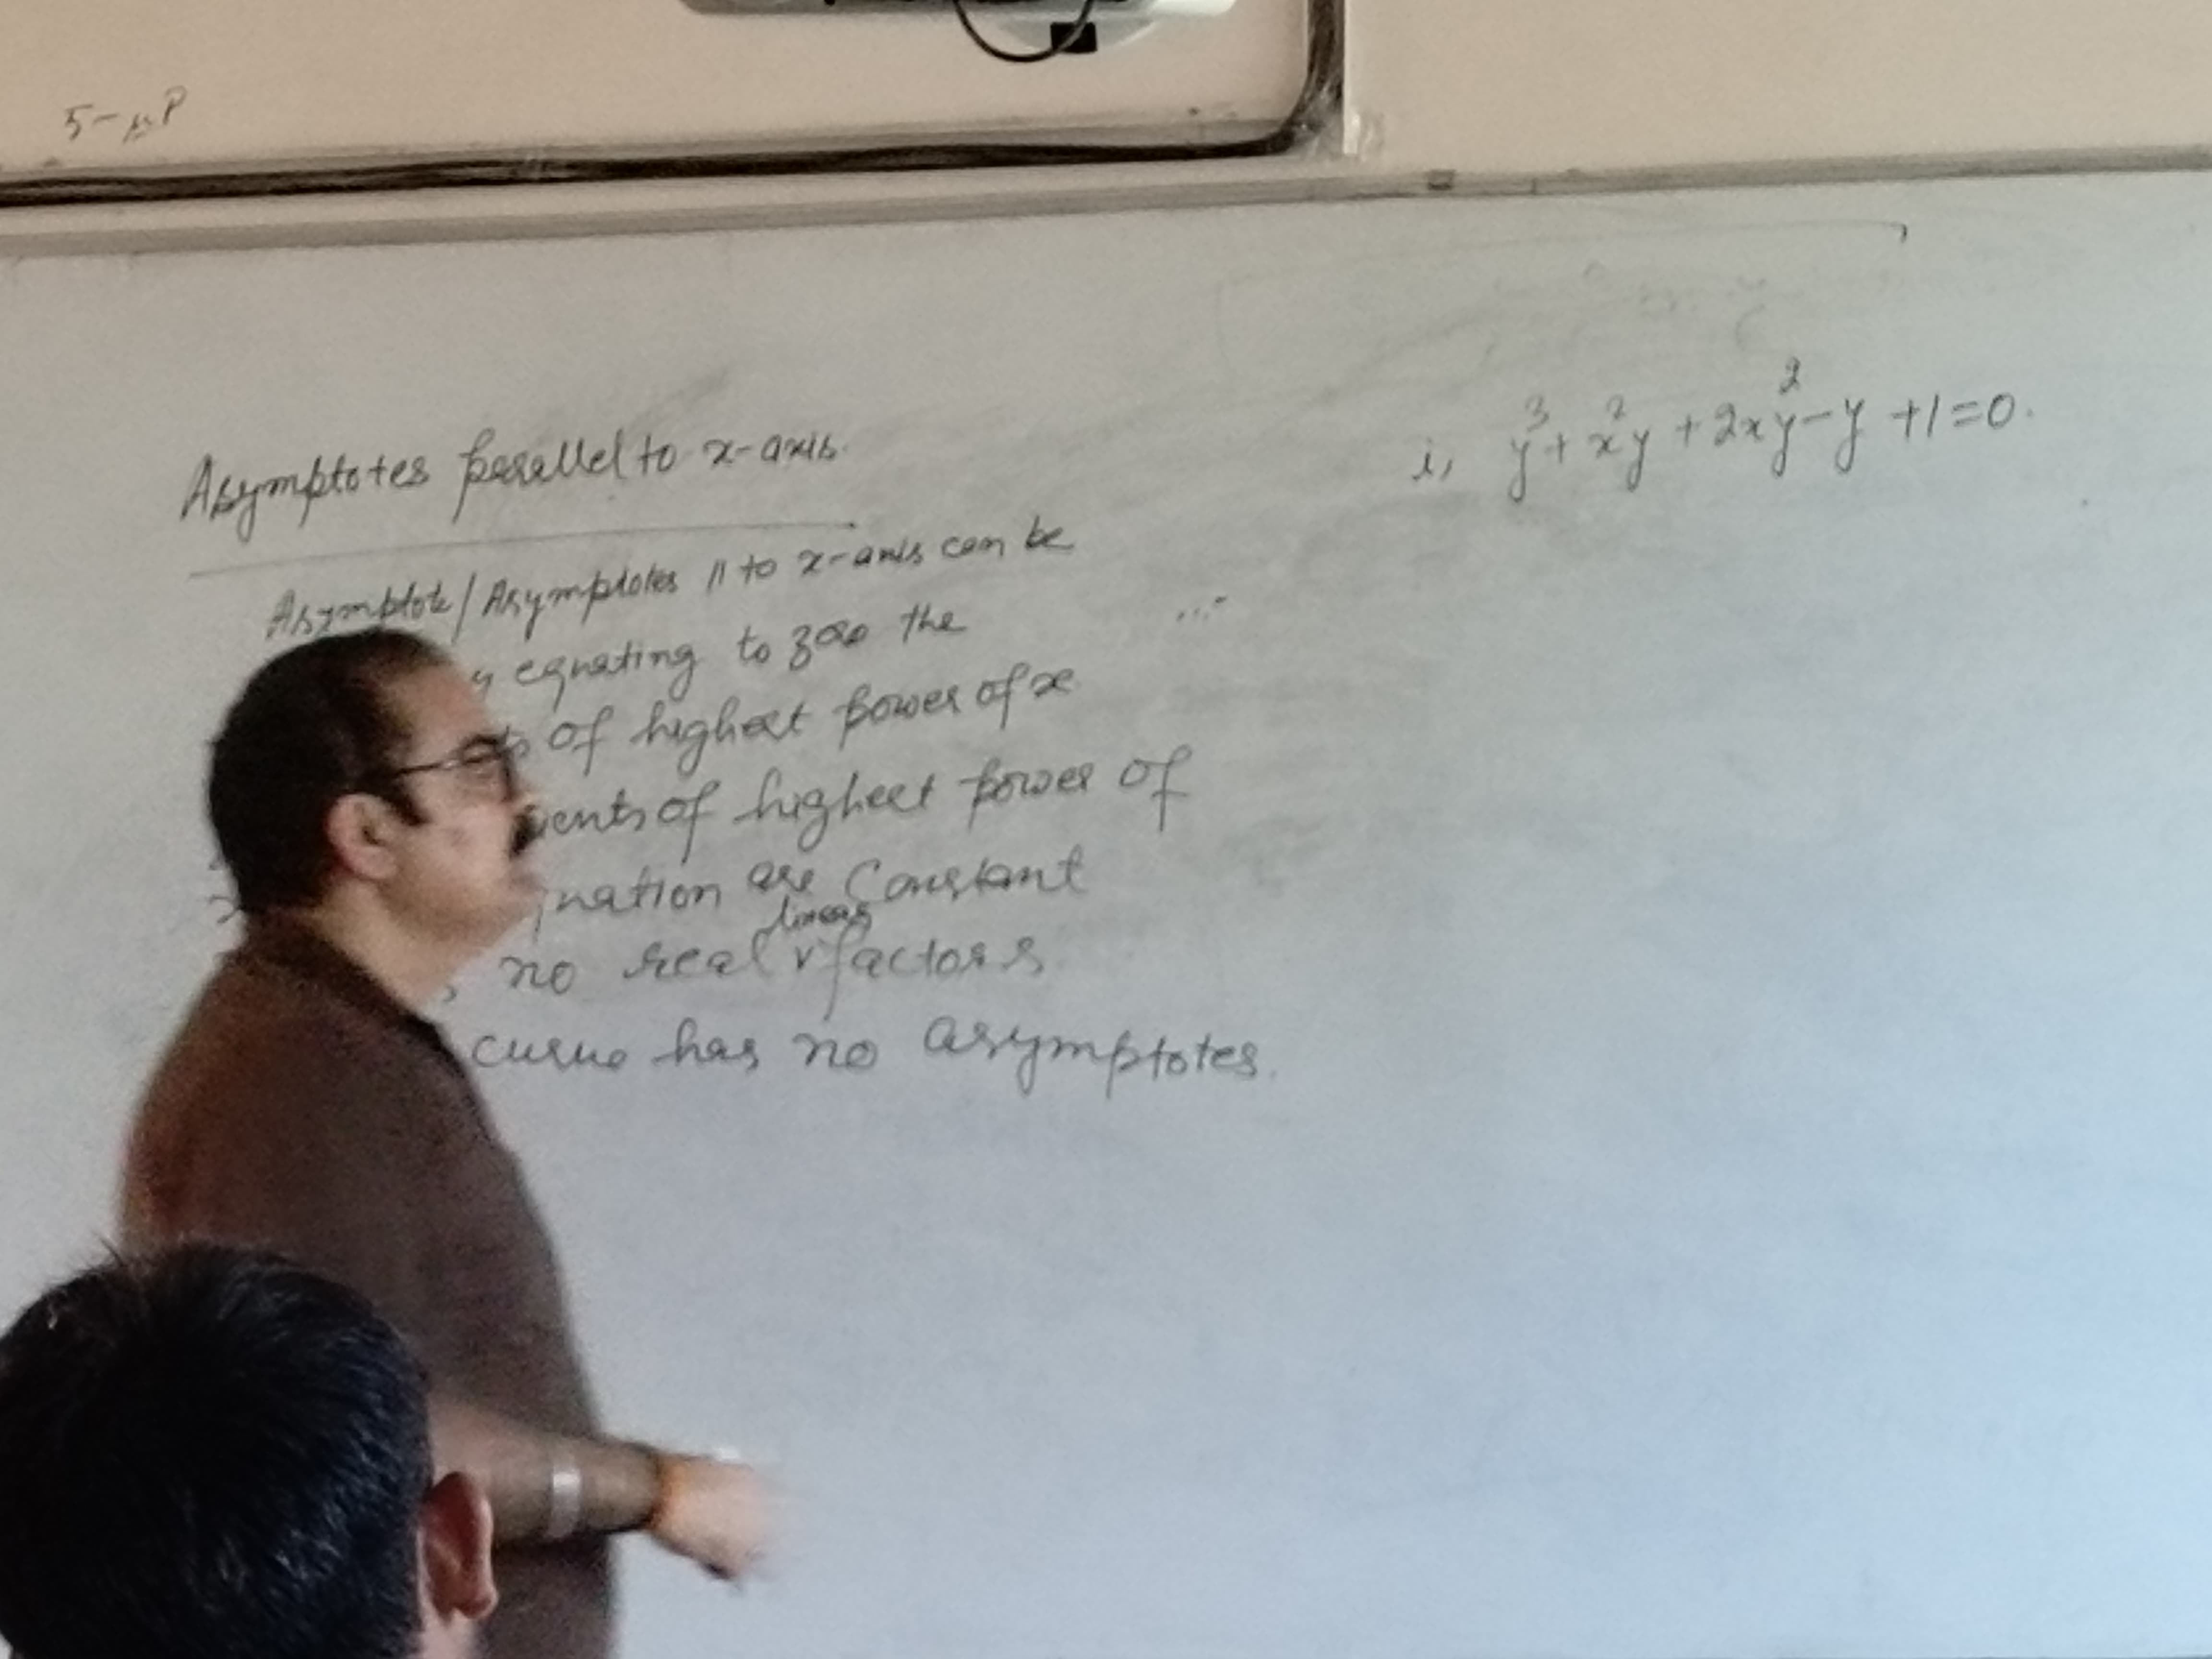 5-μP
Asymptotes parallel to x-axis.
Asymptote/Asymptotes || to x-axis can be
equating to zero the
of highest power of x
of highest power of
are Constant
no real linear factors
curve has no asymptotes.
i, y³ + x²y + 2xy² - y + 1 = 0.